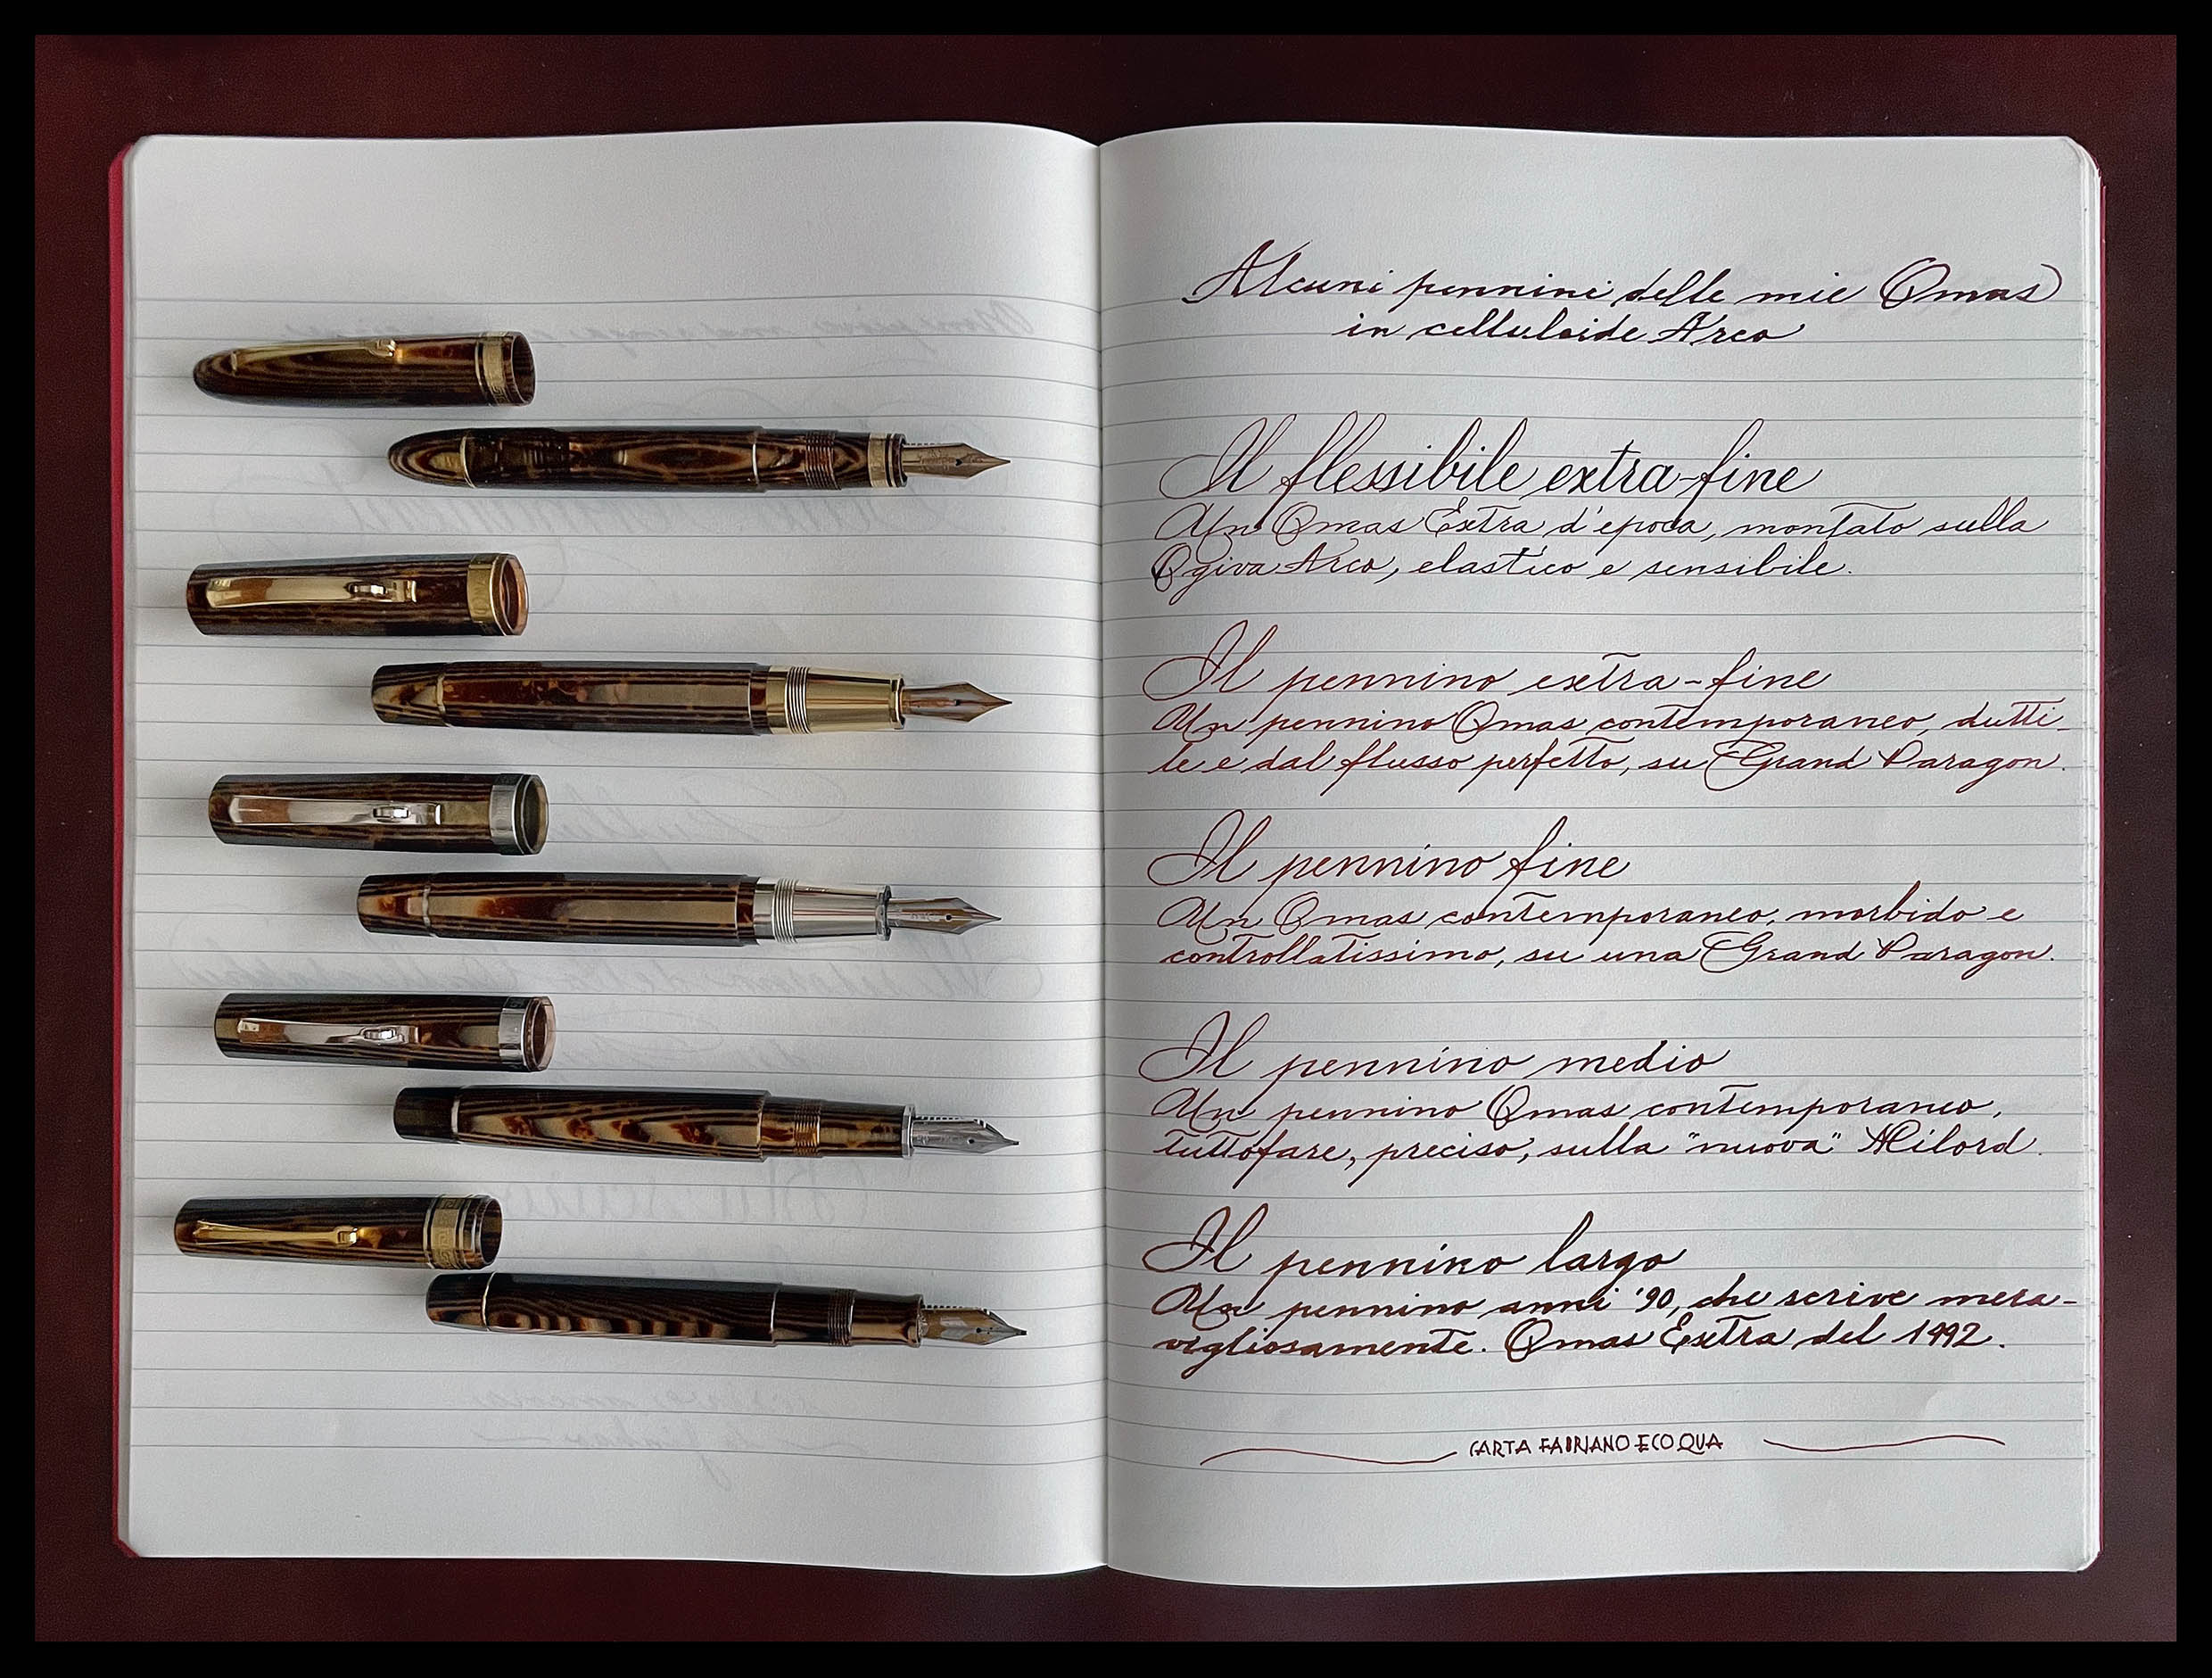 Alcuni pennini delle mie Omas
in celluloide Arco
Il flessibile extra-fine
Un Omas Extra d'epoca, montato sulla
Ogiva Arco, elastico e sensibile.
Il pennino extra-fine
Un pennino Omas contemporaneo, dutti-
le e dal flusso perfetto, su Grand Paragon.
Il pennino fine
Un Omas contemporaneo, morbido e
controllatissimo, su una Grand Paragon.
Il pennino medio
Un pennino Omas contemporaneo,
tuttofare, preciso, sulla "nuova" Milord.
Il pennino largo
Un pennino anni '90, che scrive mera-
vigliosamente. Omas Extra del 1992.
CARTA FABRIANO ECOQUA